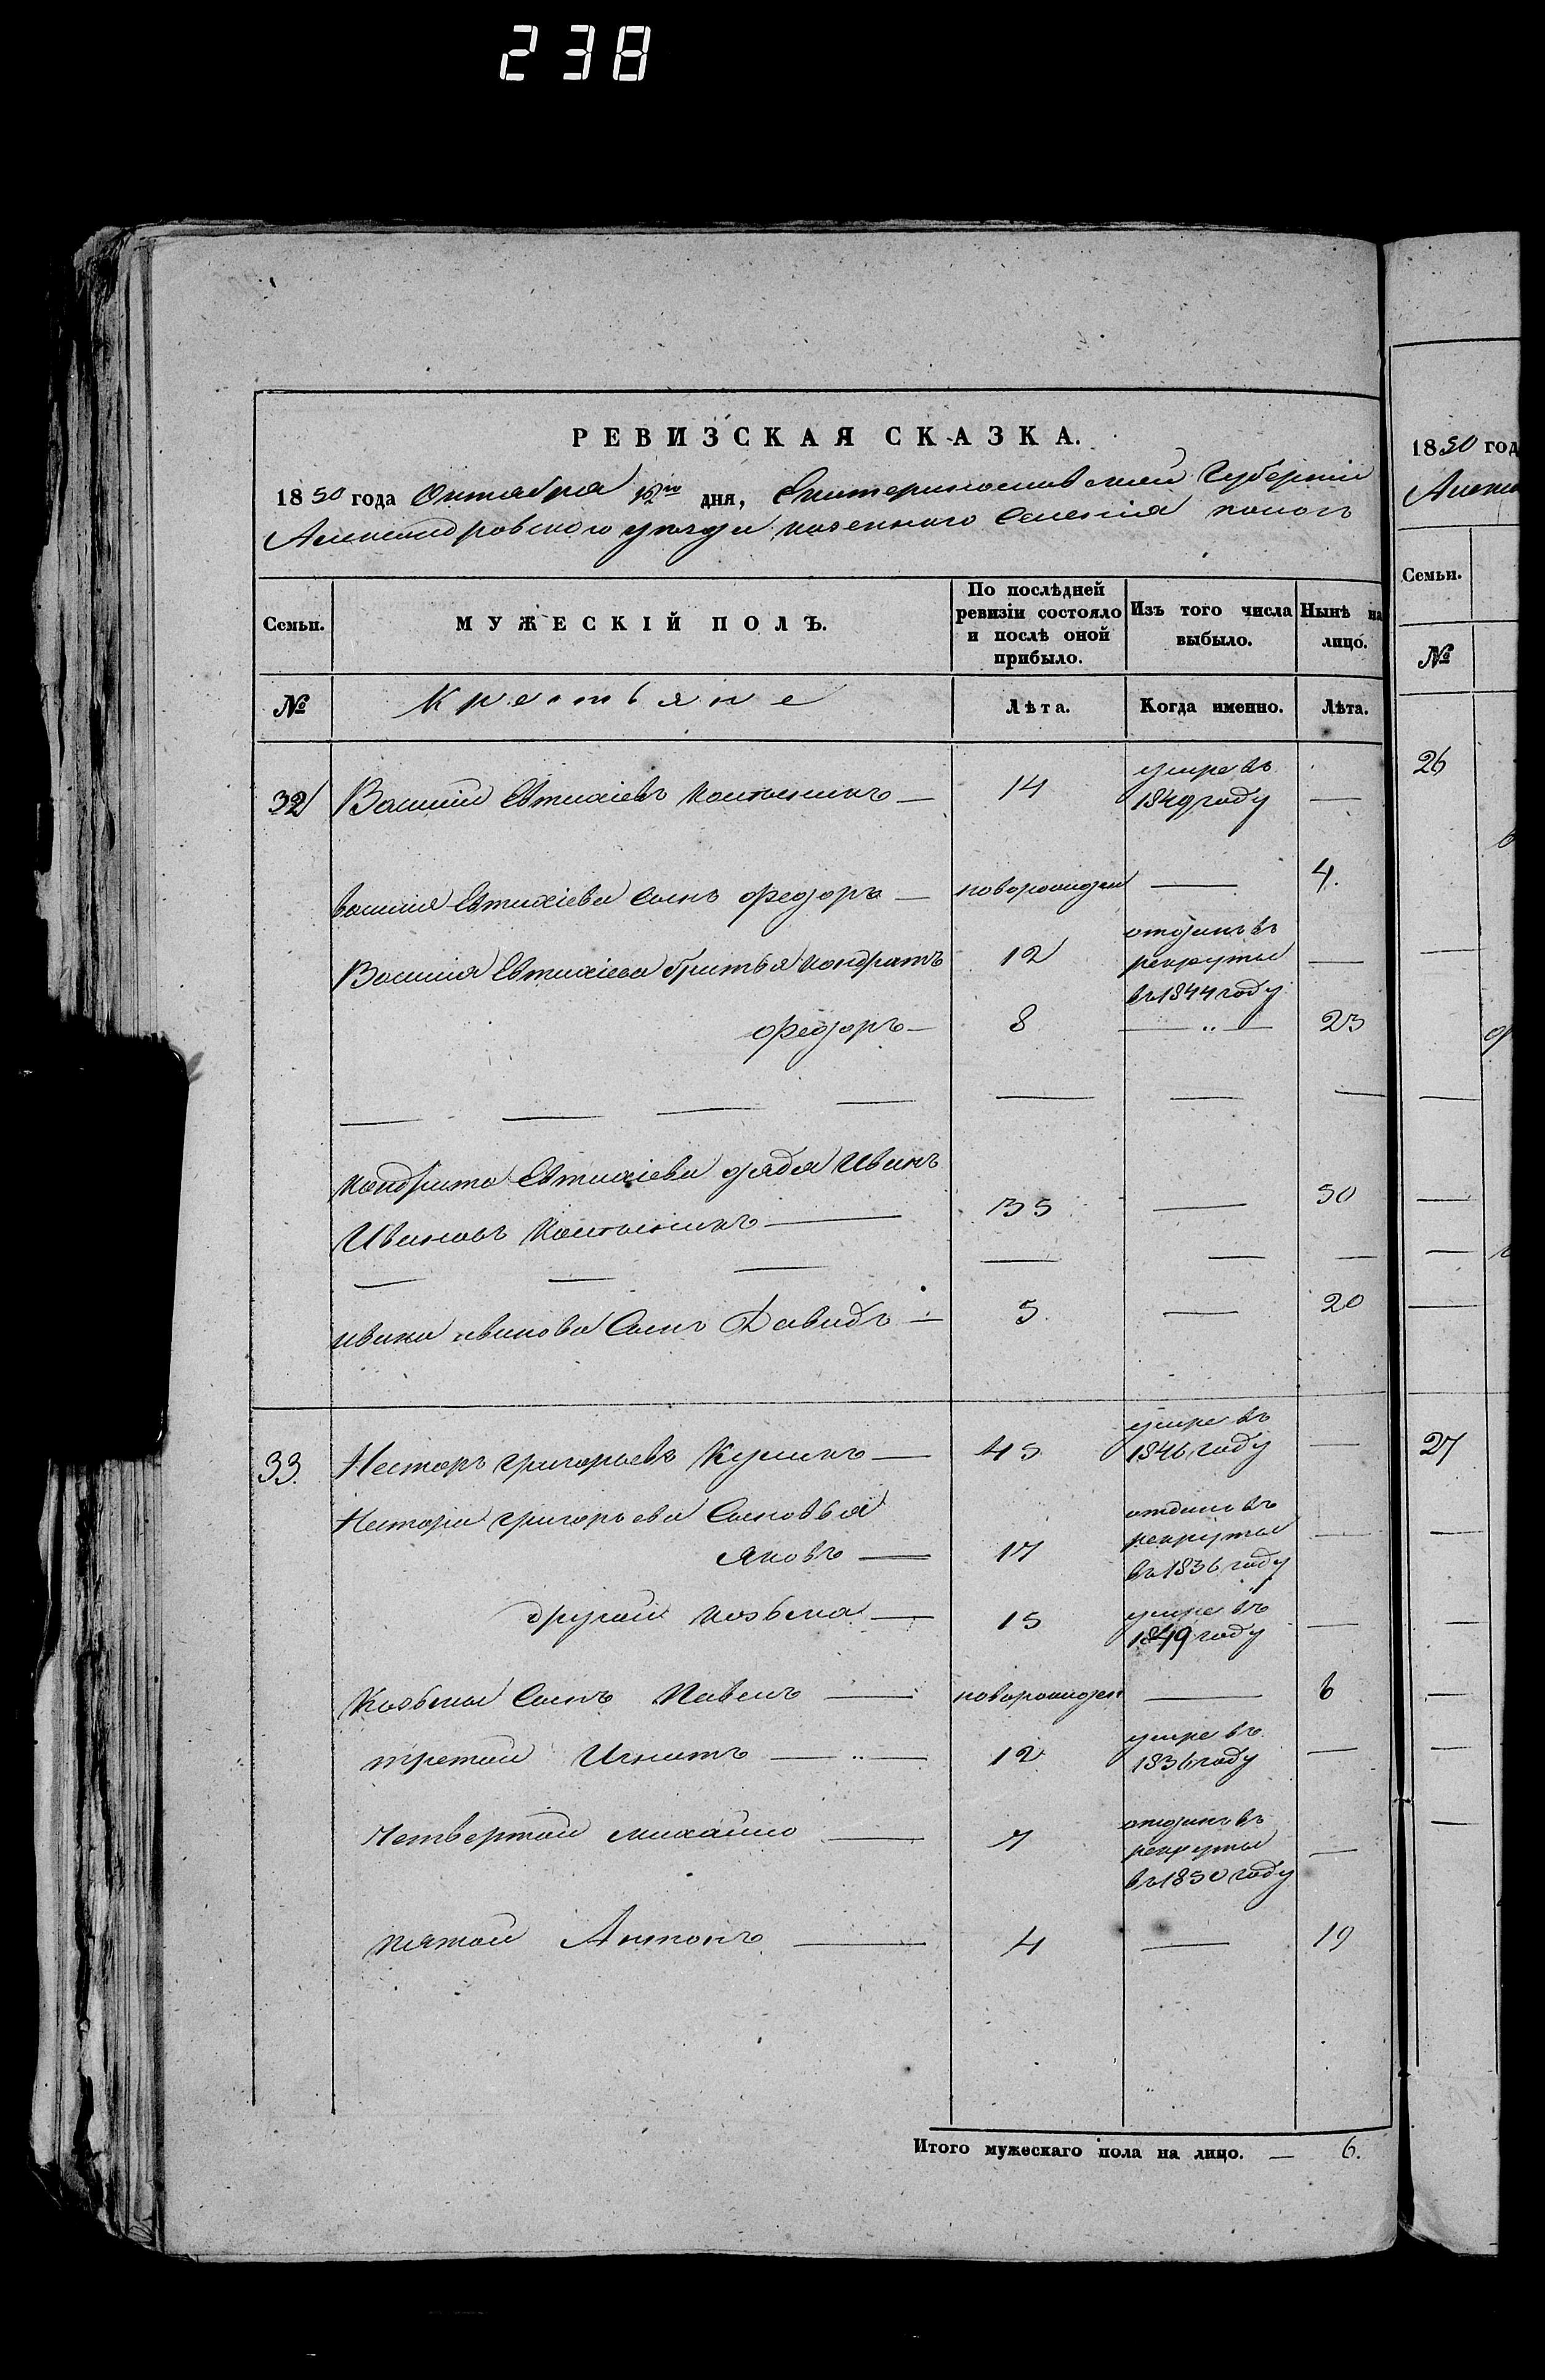 238
РЕВИЗСКАЯ СКАЗКА.
1850 года Октября 12го дня, Екатеринославской Губернии
Александровского уезда казенного Селения
Семьи.
МУЖЕСКІЙ ПОЛЪ.
По послѣдней ревизіи состояло и послѣ оной прибыло.
Изъ того числа выбыло.
Нынѣ на лицо.
№
Крестьяне
Лѣта.
Когда именно.
Лѣта.
32 Василий Евтихіевъ — 14 умре въ 1849 году —
василия Евтихіева Сынъ Федоръ — новорожден — 4.
Василия Евтихіева братья Кондратъ 12 отданъ въ рекруты въ 1844 году —
Федоръ — 8 — „ — 23
Кондрата Евтихіева дядя Иванъ
Ивановъ — 35 — 50
ивана иванова Сынъ Давидъ — 5. — 20
33. Несторъ григорьевъ Куликъ — 45 умре въ 1846 году —
Нестора григорьева Сыновья
Яковъ — 17 отданъ въ рекруты въ 1836 году —
другой козьма — 15 умре въ 1849 году —
Козьмы Сынъ Павелъ — новорожден — 6
третий Игнатъ — „ — 12 умре въ 1836 году —
Четвертой михайло — 7 отданъ въ рекруты въ 1850 году —
пятой Антонъ — 4 — 19
Итого мужескаго пола на лицо. — 6.
1850 год
Семьи.
№
26
27